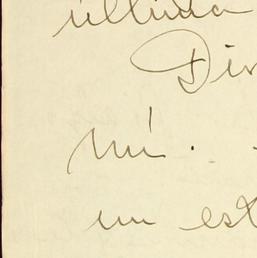 última
Din
mi. .
un est